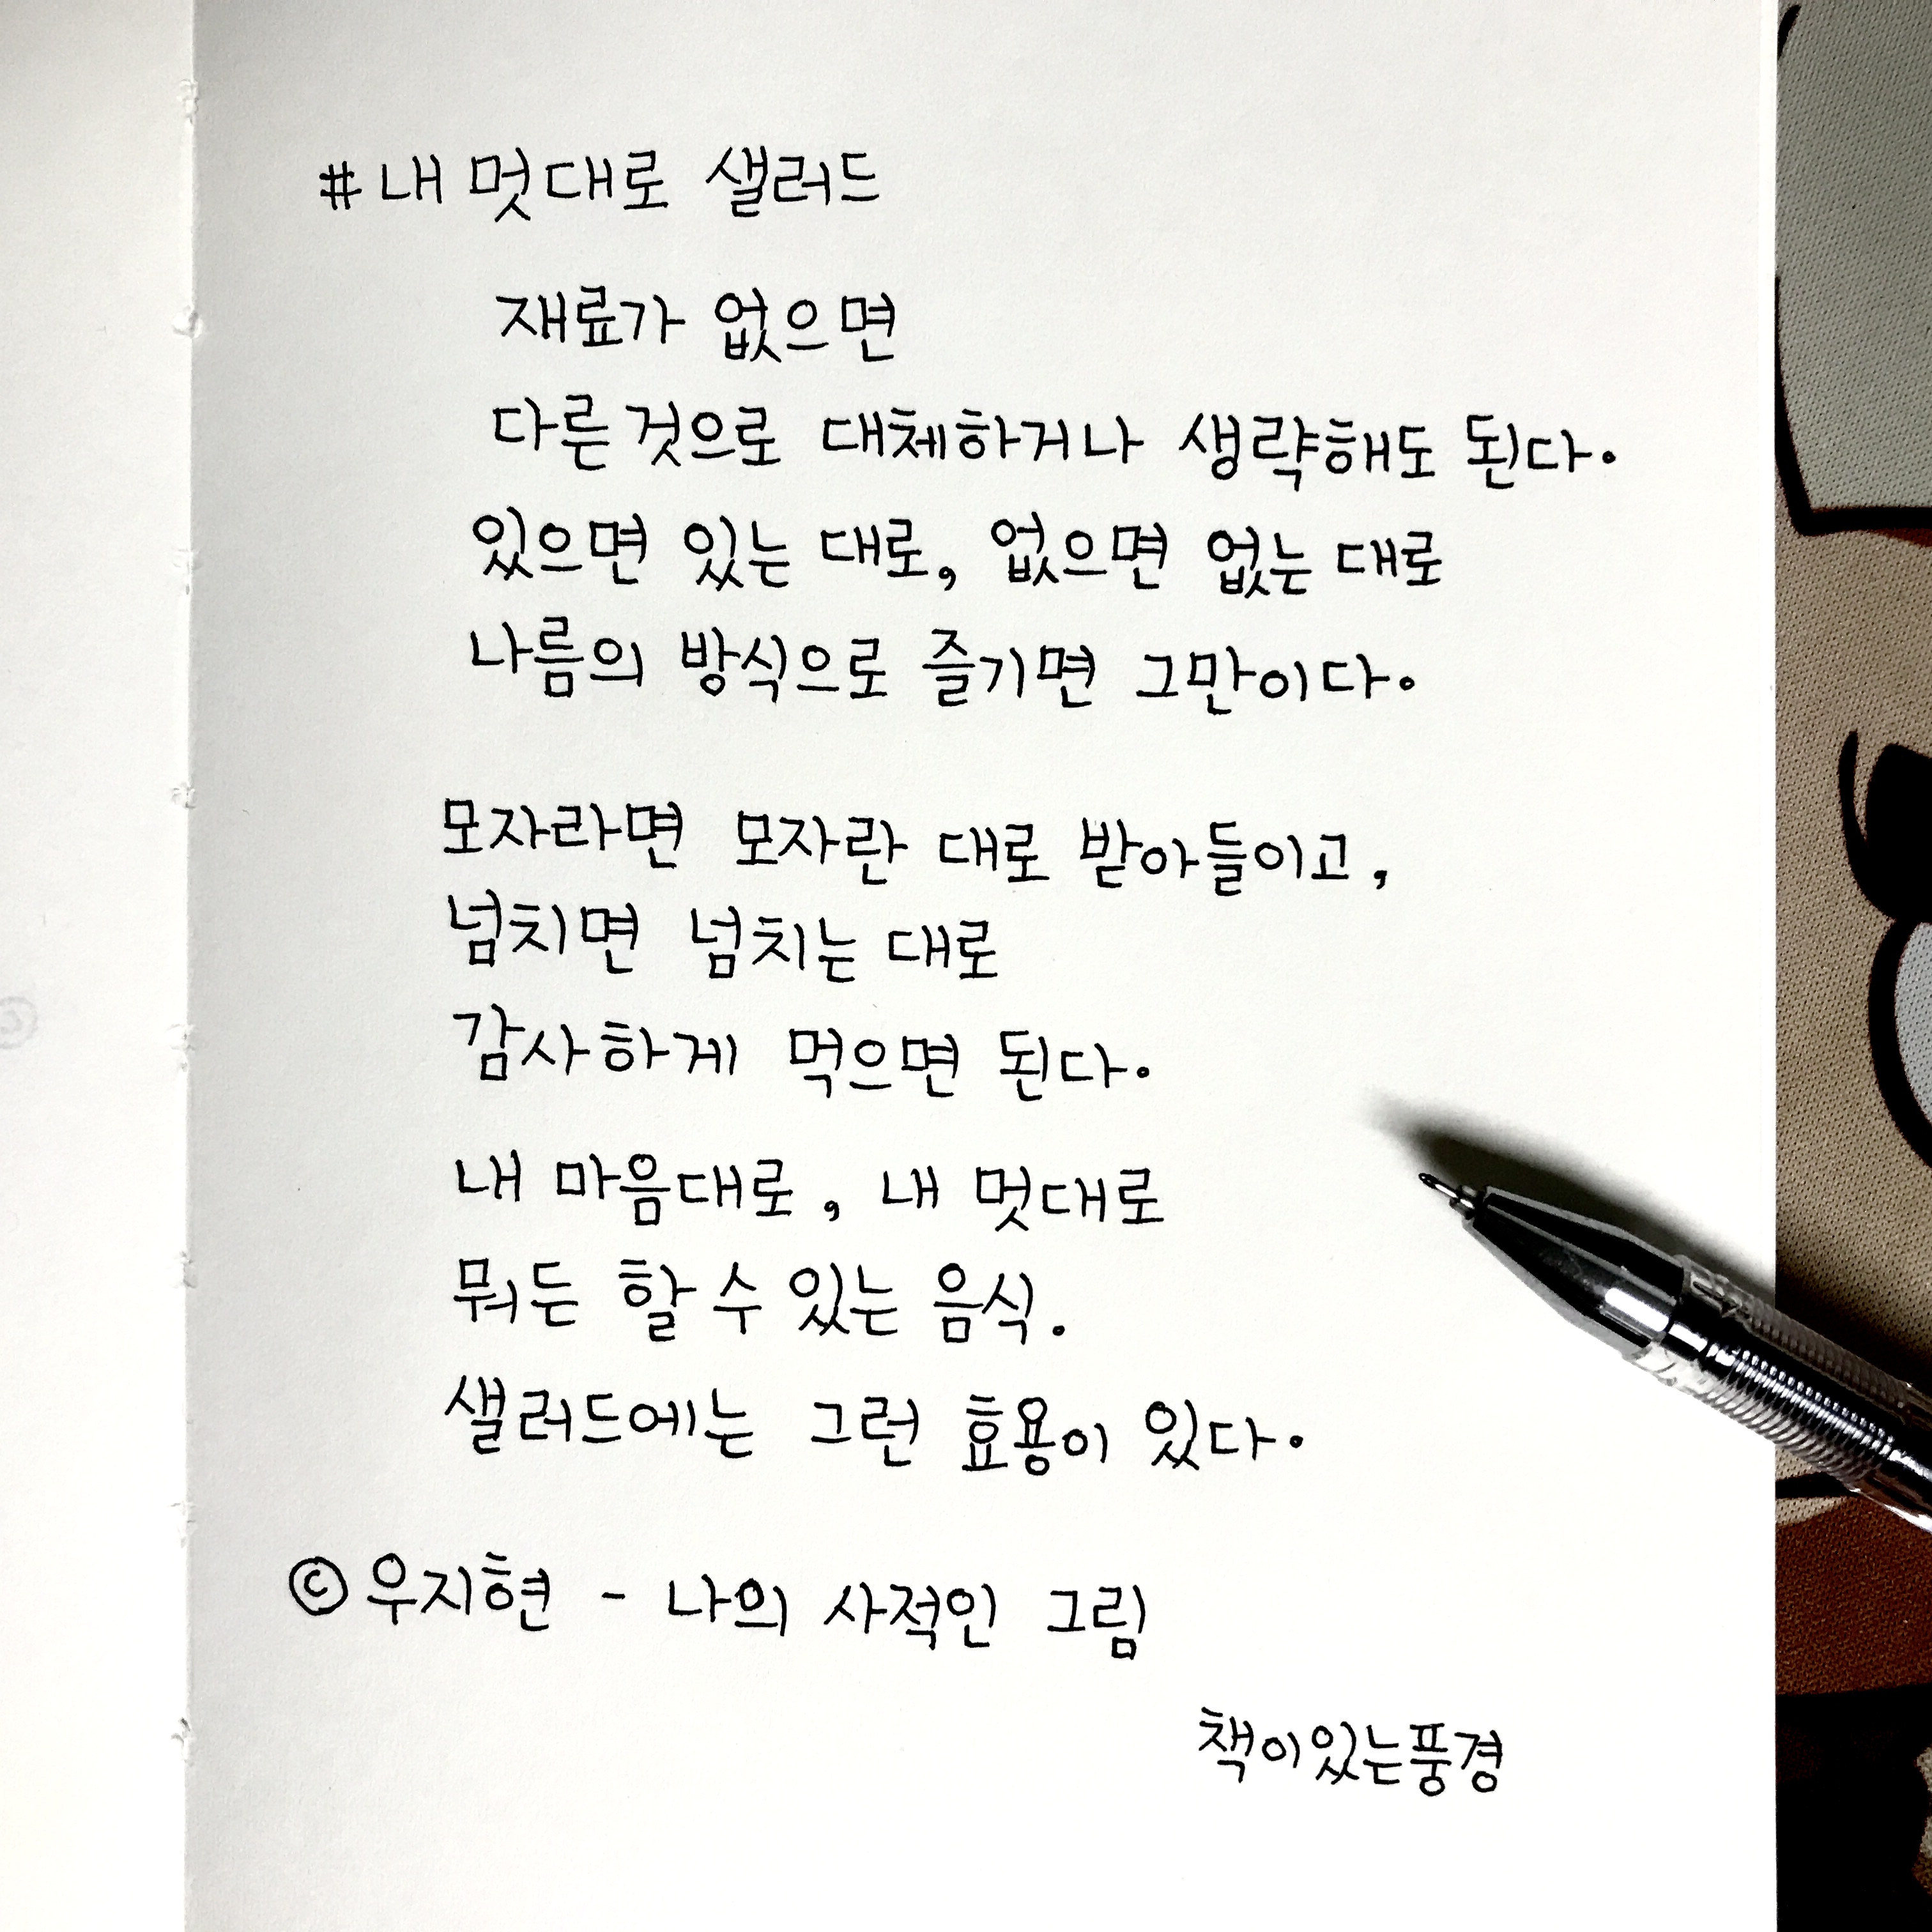 #내 멋대로 샐러드
재료가 없으면
다른 것으로 대체하거나 생략해도 된다.
있으면 있는 대로, 없으면 없는 대로
나름의 방식으로 즐기면 그만이다.
모자라면 모자란 대로 받아들이고,
넘치면 넘치는 대로
감사하게 먹으면 된다.
내 마음대로, 내 멋대로
뭐든 할 수 있는 음식.
샐러드에는 그런 효용이 있다.
ⓒ 우지현 - 나의 사적인 그림
책이있는풍경